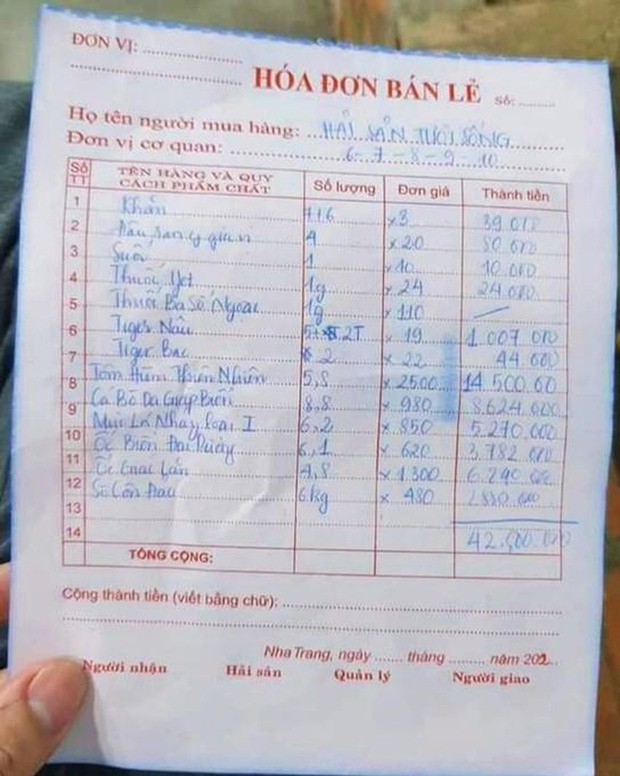 ĐƠN VỊ: ........................
........................................
HÓA ĐƠN BÁN LẺ Số: ........
Họ tên người mua hàng: HẢI SẢN TƯƠI SỐNG
Đơn vị cơ quan: 6-7-8-9-10
Số TT TÊN HÀNG VÀ QUY CÁCH PHẨM CHẤT Số lượng Đơn giá Thành tiền
1 Khăn x 3 39 000
2 4 x 20 80 000
3 Suối 1 x 10 10 000
4 Thuốc Jet 1g x 24 24 000
5 Thuốc Ba Số Ngoại 1g x 110
6 Tiger Nâu 2T x 19 1 007 000
7 Tiger Bạc 2 x 22 44 000
8 Tôm Hùm Thiên Nhiên 5,8 x 2500 14 500.00
9 Cá Bò Da Giáp Biển 8,8 x 980 8.624.000
10 Mực Lá Nháy loại I 6,2 x 850 5.270.000
11 Ốc Biển 6,1 x 620 3.782 000
12 Ốc Lớn 4,8 x 1.300 6.240 000
13 Sò Côn Đảo 6kg x 480 2880 000
14 000
TỔNG CỘNG:
Cộng thành tiền (viết bằng chữ): ........................................
................................................................................
Nha Trang, ngày ....... tháng ......... năm 202...
Người nhận Hải sản Quản lý Người giao